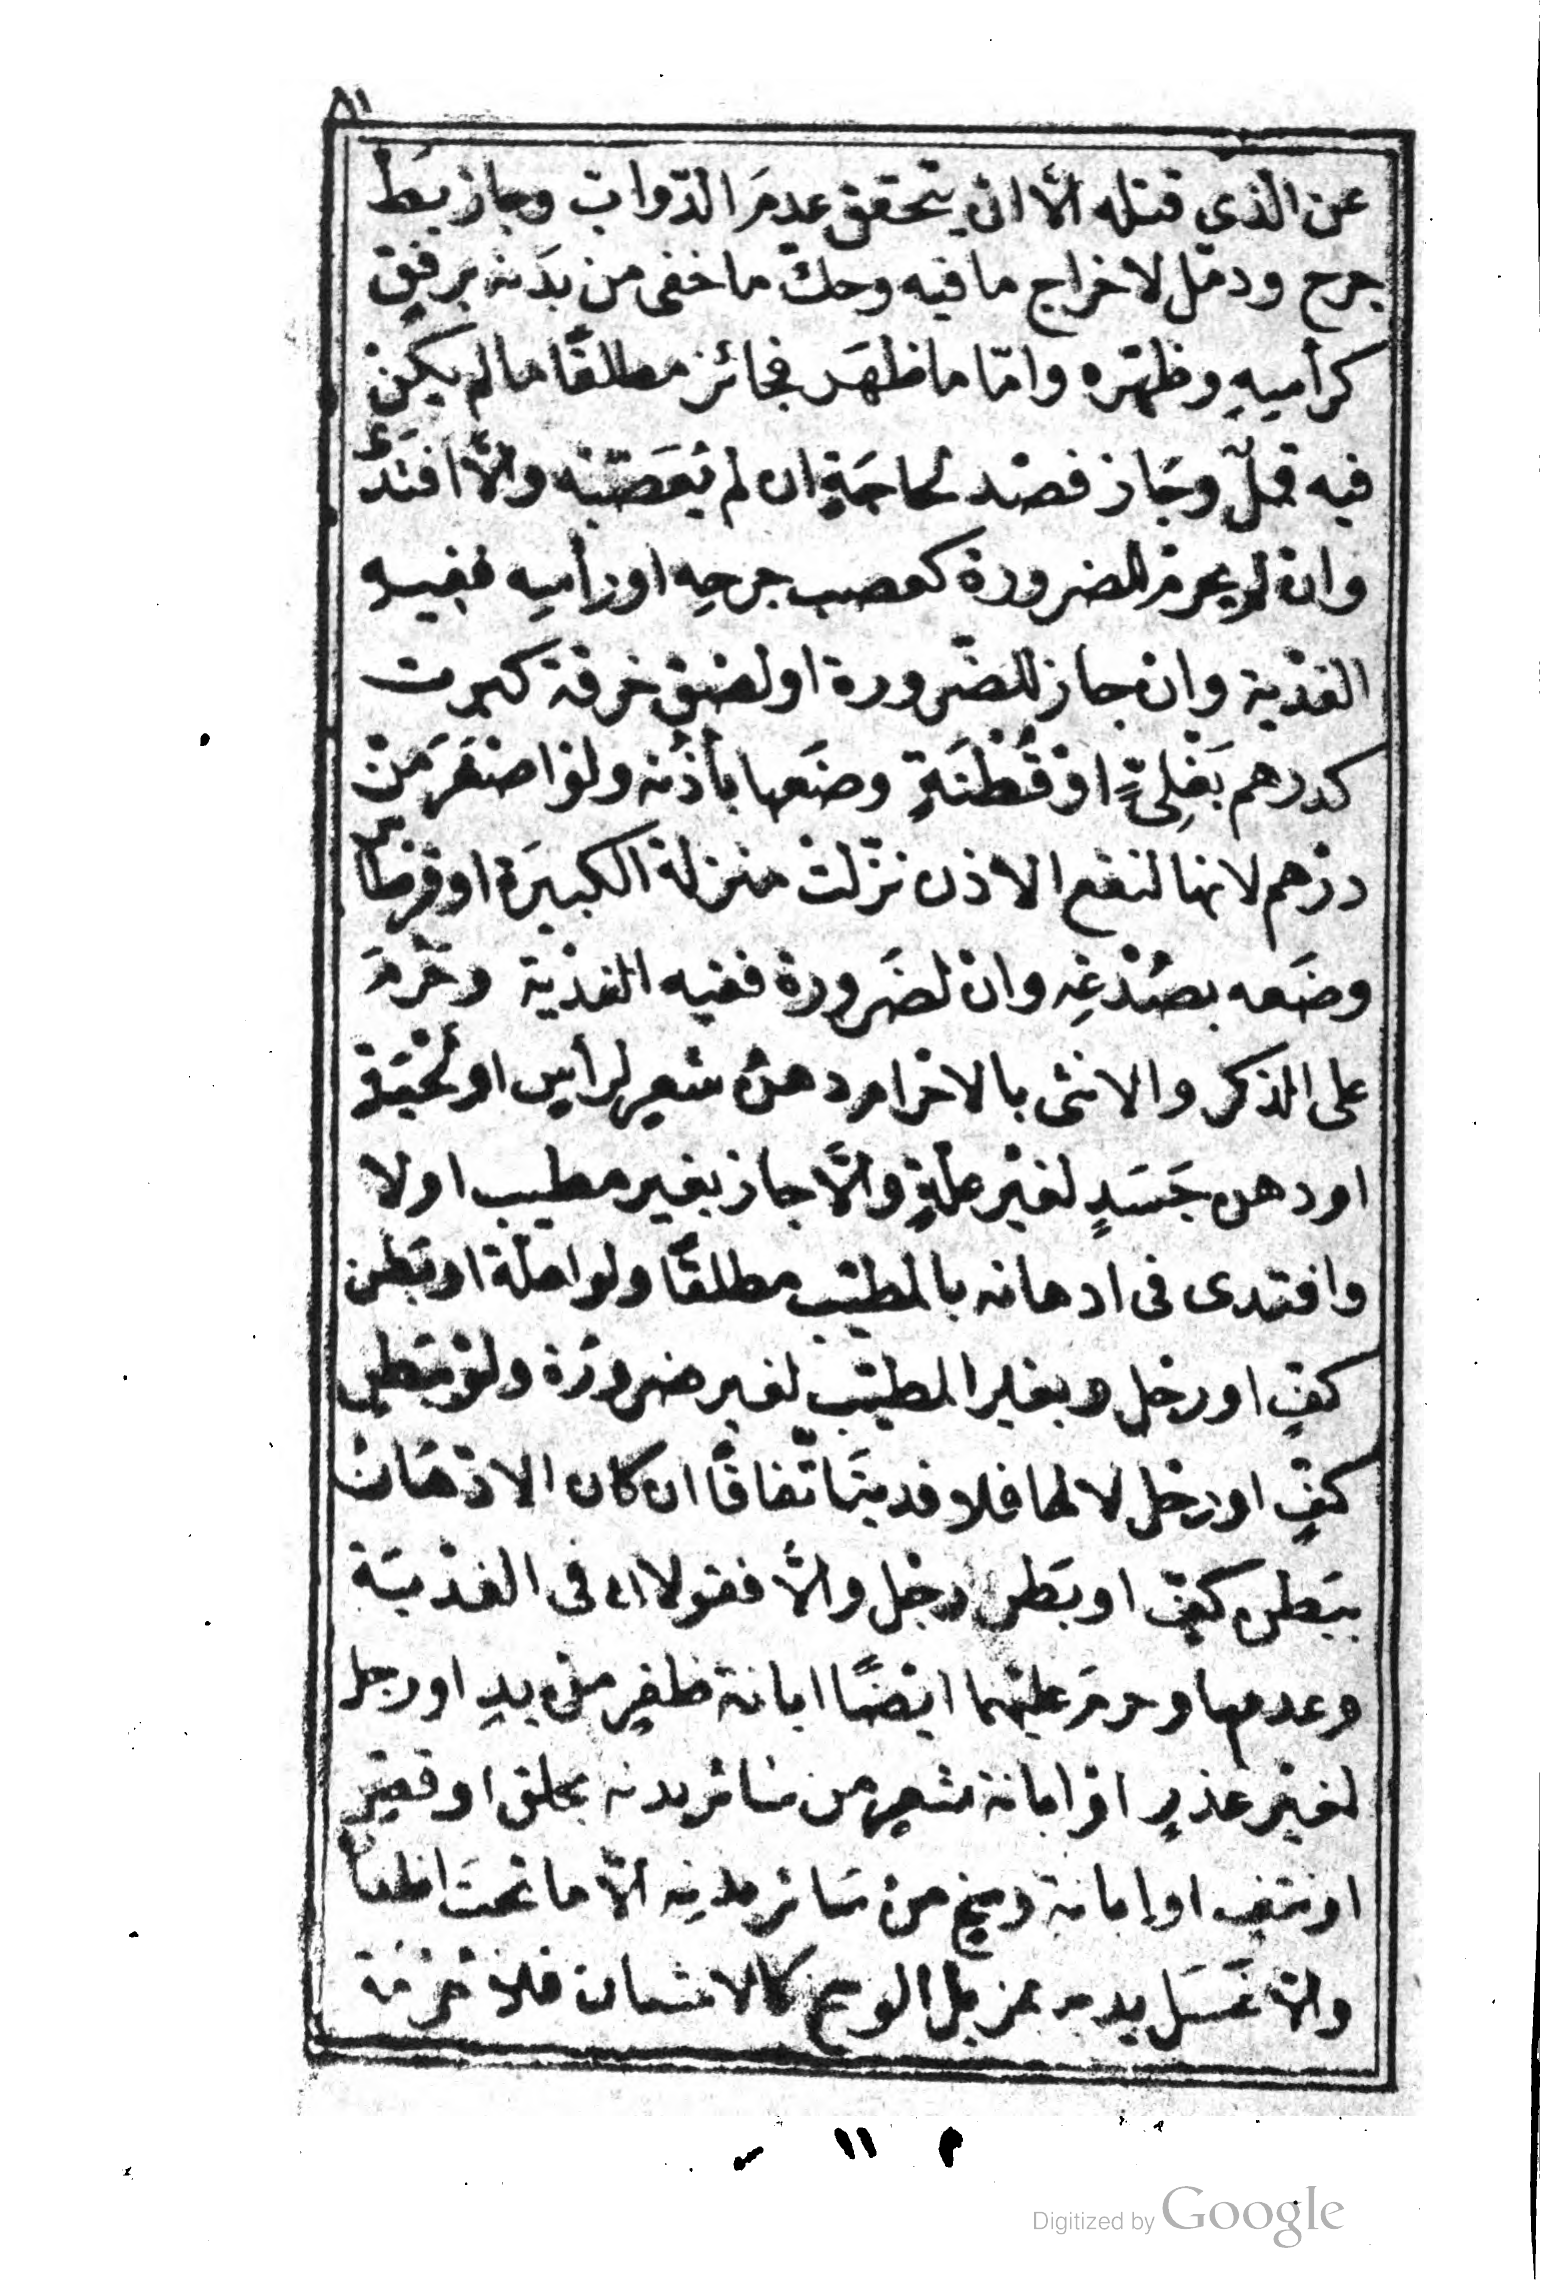 ٨١
عن الذي قتله الّا ان يتحقق عدمَ الدّوابّ وجاز بَطّ
جرح ودمّل لاخراج ما فيه وحكّ ما خفى من بدَنه برفقٍ
كرأسِهِ وظهْره وامّا ما ظهَر فجائز مطلقًا ما لم يكنْ
فيه قملٌ وجَاز فصْد لحاجَةٍ ان لم يُعَصّبْه والّا افتَدَى
وان لم يحرمْ للضرورة كعصب جرحِه او رأسِه ففيه
الفدْية وان جاز للضّرورة او لصْق خرقة كبرت
كدرهم بَغْلِىٍّ اوْ قُطْنَةٍ وضَعها بأذُنه ولوْ اصْغَرَ منْ
درْهم لانها لنفع الاذن نزّلتْ منزلة الكبيَرة او قرطاسٌ
وضَعه بصُدْغِه وان لضَرورة ففيه الفدْية وحَرُمَ
على الذكر والانثى بالاحْرام دهنُ شعرِ لرأسٍ او لحْيَةٍ
او دهن جَسَدٍ لغيْر علّةٍ والّا جاز بغير مطيب او لا
وافتدى فى ادهانه بالمطيّب مطلقًا ولو لعلّة او بَطن
كفٍ او رجْل وبغير المطيّب لغير ضرورَة ولوْ ببَطن
كفٍّ او رجْل لا لها فلا فديَة اتّفاقًا ان كان الادْهَان
ببَطن كفٍّ او بَطن رجْل والّا فقولان فى الفدْيَة
وعدمها وحرمَ عليْهما ايْضًا ابانة ظفرٍ منْ يدٍ او رجل
لغيْر عذرٍ اوْ ابانة شعرٍ من سَائر بدنه بحلق او قصٍّ
او نتفٍ او إبانة وسخٍ منْ سَائر بدنِه الّا ما تحتَ اظفاره
والّا غَسَل يديه بمزيل الوسخ كالاشنان فلا حُرْمَة
م ١١ س
Digitized by Google